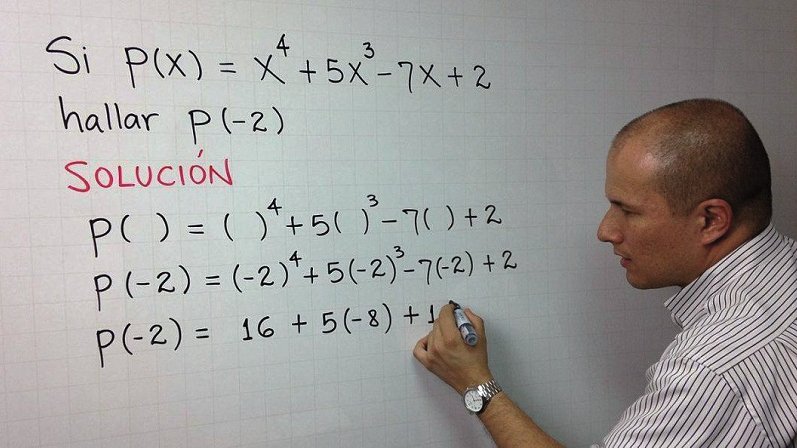 Si P(X) = X⁴ + 5X³ - 7X + 2
hallar P(-2)
SOLUCIÓN
P( ) = ( )⁴ + 5( )³ - 7( ) + 2
P(-2) = (-2)⁴ + 5(-2)³ - 7(-2) + 2
P(-2) = 16 + 5(-8) + 1